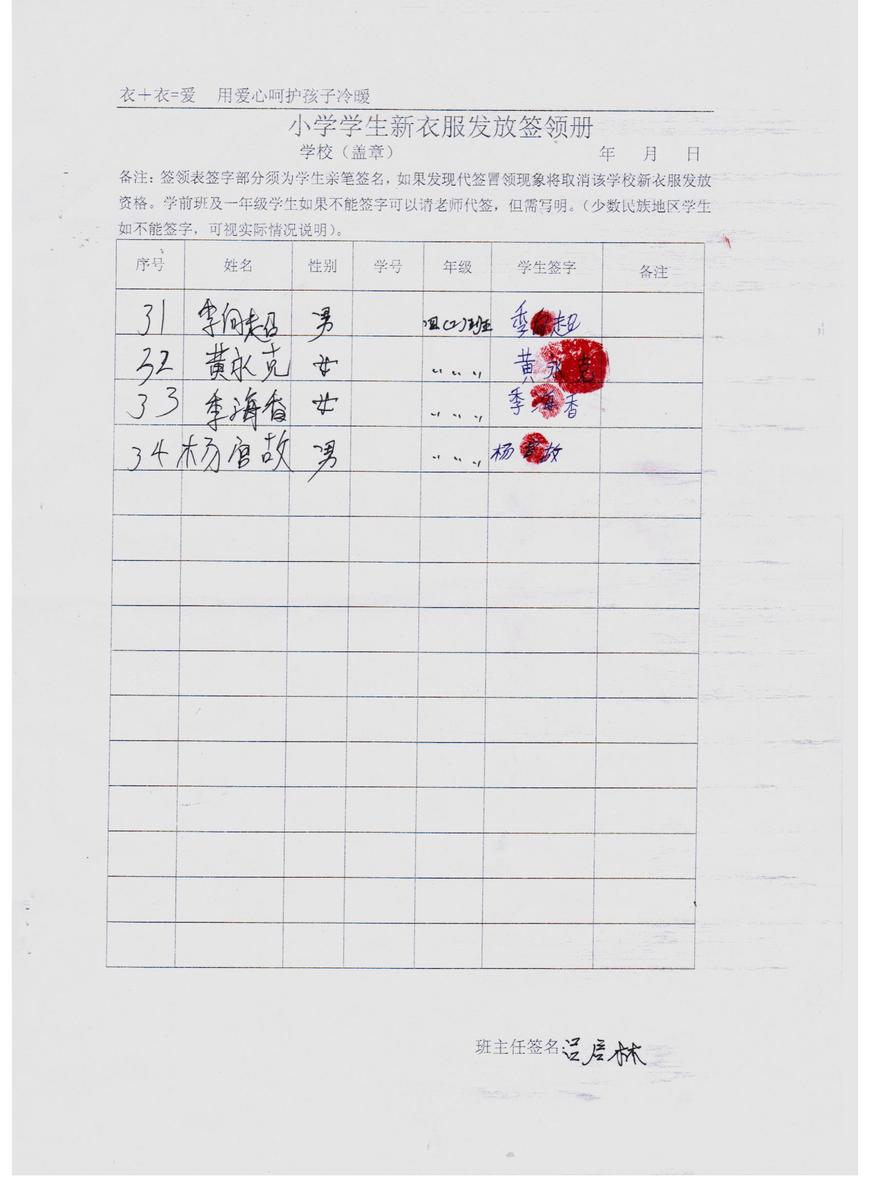 衣+衣=爱 用爱心呵护孩子冷暧
小学学生新衣服发放签领册
学校（盖章） 年 月 日
备注：签领表签字部分须为学生亲笔签名，如果发现代签冒领现象将取消该学校新衣服发放
资格。学前班及一年级学生如果不能签字可以请老师代签，但需写明。（少数民族地区学生
如不能签字，可视实际情况说明）。
序号 姓名 性别 学号 年级 学生签字 备注
31 季向超 男 (2)班 季 超
32 黄永克 女 〃 〃 〃 黄永克
33 季海香 女 〃 〃 〃 季海香
34 杨官故 男 〃 〃 〃 杨官故
班主任签名: 吕启林